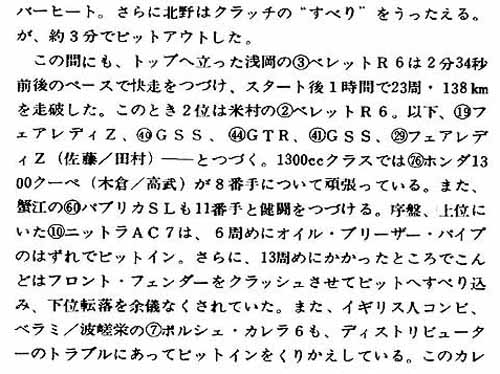 バーヒート。さらに北野はクラッチの“すべり”をうったえる。
が、約3分でピットアウトした。
この間にも、トップへ立った浅岡の③ベレットR6は2分34秒
前後のペースで快走をつづけ、スタート後1時間で23周・138km
を走破した。このとき2位は米村の②ベレットR6。以下、⑲フ
ェアレディZ、㊵GSS、㊹GTR、㊶GSS、㉙フェアレデ
ィZ(佐藤/田村)――とつづく。1300ccクラスでは○76ホンダ13
00クーペ(木倉/高武)が8番手について頑張っている。また、
蟹江の○60パブリカSLも11番手と健闘をつづける。序盤、上位に
いた⑩ニットラAC7は、6周めにオイル・ブリーザー・パイプ
のはずれでピットイン。さらに、13周めにかかったところでこん
どはフロント・フェンダーをクラッシュさせてピットへすべり込
み、下位転落を余儀なくされていた。また、イギリス人コンビ、
ベラミ/波嵯栄の⑦ポルシェ・カレラ6も、ディストリビュータ
ーのトラブルにあってピットインをくりかえしている。このカレ